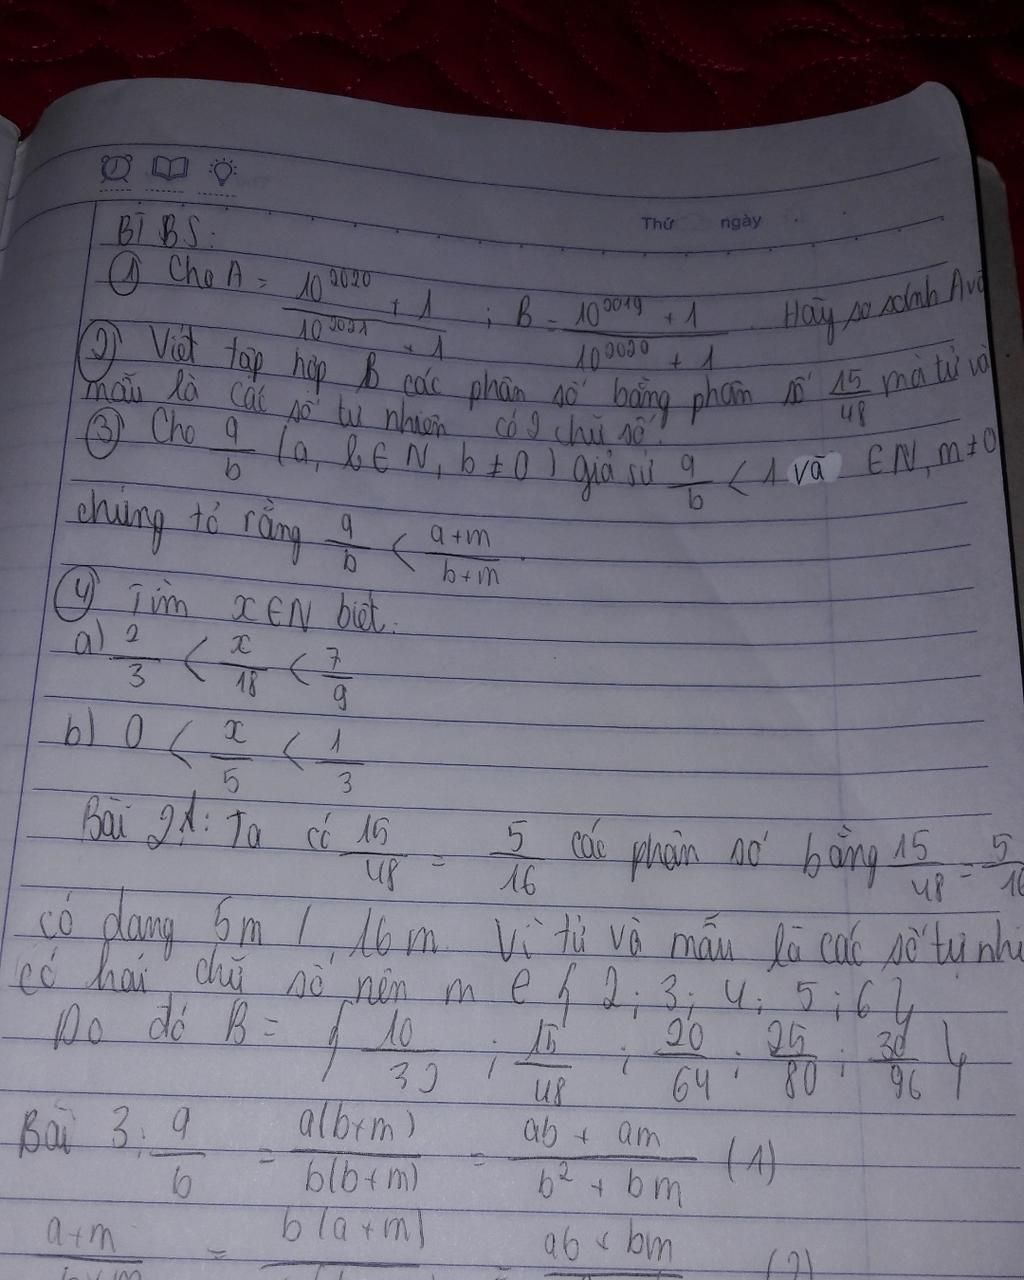 Thứ ngày
BT BS:
① Cho A = \frac{10^{2020} + 1}{10^{2021} + 1} ; B = \frac{10^{2019} + 1}{10^{2020} + 1} . Hãy so sánh A và
② Viết tập hợp B các phân số bằng phân số \frac{15}{48} mà tử và
mẫu là các số tự nhiên có 2 chữ số.
③ Cho \frac{a}{b} (a, b ∈ N, b ≠ 0) giả sử \frac{a}{b} < 1 và ∈ N, m ≠ 0
chứng tỏ rằng \frac{a}{b} < \frac{a+m}{b+m}.
④ Tìm x ∈ N biết:
a) \frac{2}{3} < \frac{x}{18} < \frac{7}{9}
b) 0 < \frac{x}{5} < \frac{1}{3}
Bài 2: Ta có \frac{15}{48} = \frac{5}{16} các phân số bằng \frac{15}{48} = \frac{5}{16}
có dạng 5m / 16m. Vì tử và mẫu là các số tự nhi
có hai chữ số nên m ∈ { 2; 3; 4; 5; 6 }
Do đó B = { \frac{10}{32} ; \frac{15}{48} ; \frac{20}{64} ; \frac{25}{80} ; \frac{30}{96} }
Bài 3: \frac{a}{b} = \frac{a(b+m)}{b(b+m)} = \frac{ab + am}{b^2 + bm} (1)
\frac{a+m}{b+m} = b(a+m) ab + bm (2)